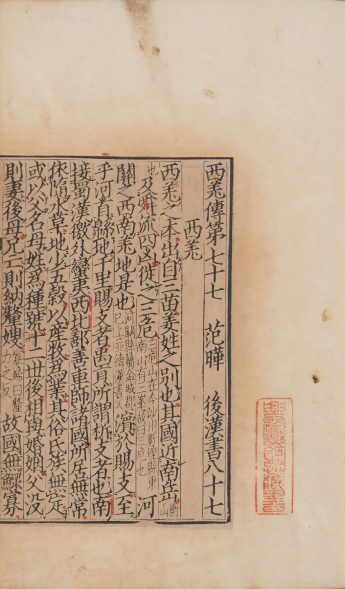 西羌傳第七十七　范曄　後漢書八十七
西羌
西羌之本出自三苗姜姓之別也其國近南岳
及舜流四凶徙之三危河
關之西南羌地是也濱於賜支至
乎河首緜地千里賜支者禹貢所謂析支者也南
接蜀漢徼外蠻夷西北鄯善車師諸國所居無常
依隨水草地少五穀以產牧爲業其俗氏族無定
或以父名母姓爲種號十二世後相與婚姻父没
則妻後母兄亡則納釐嫂故國無鰥寡